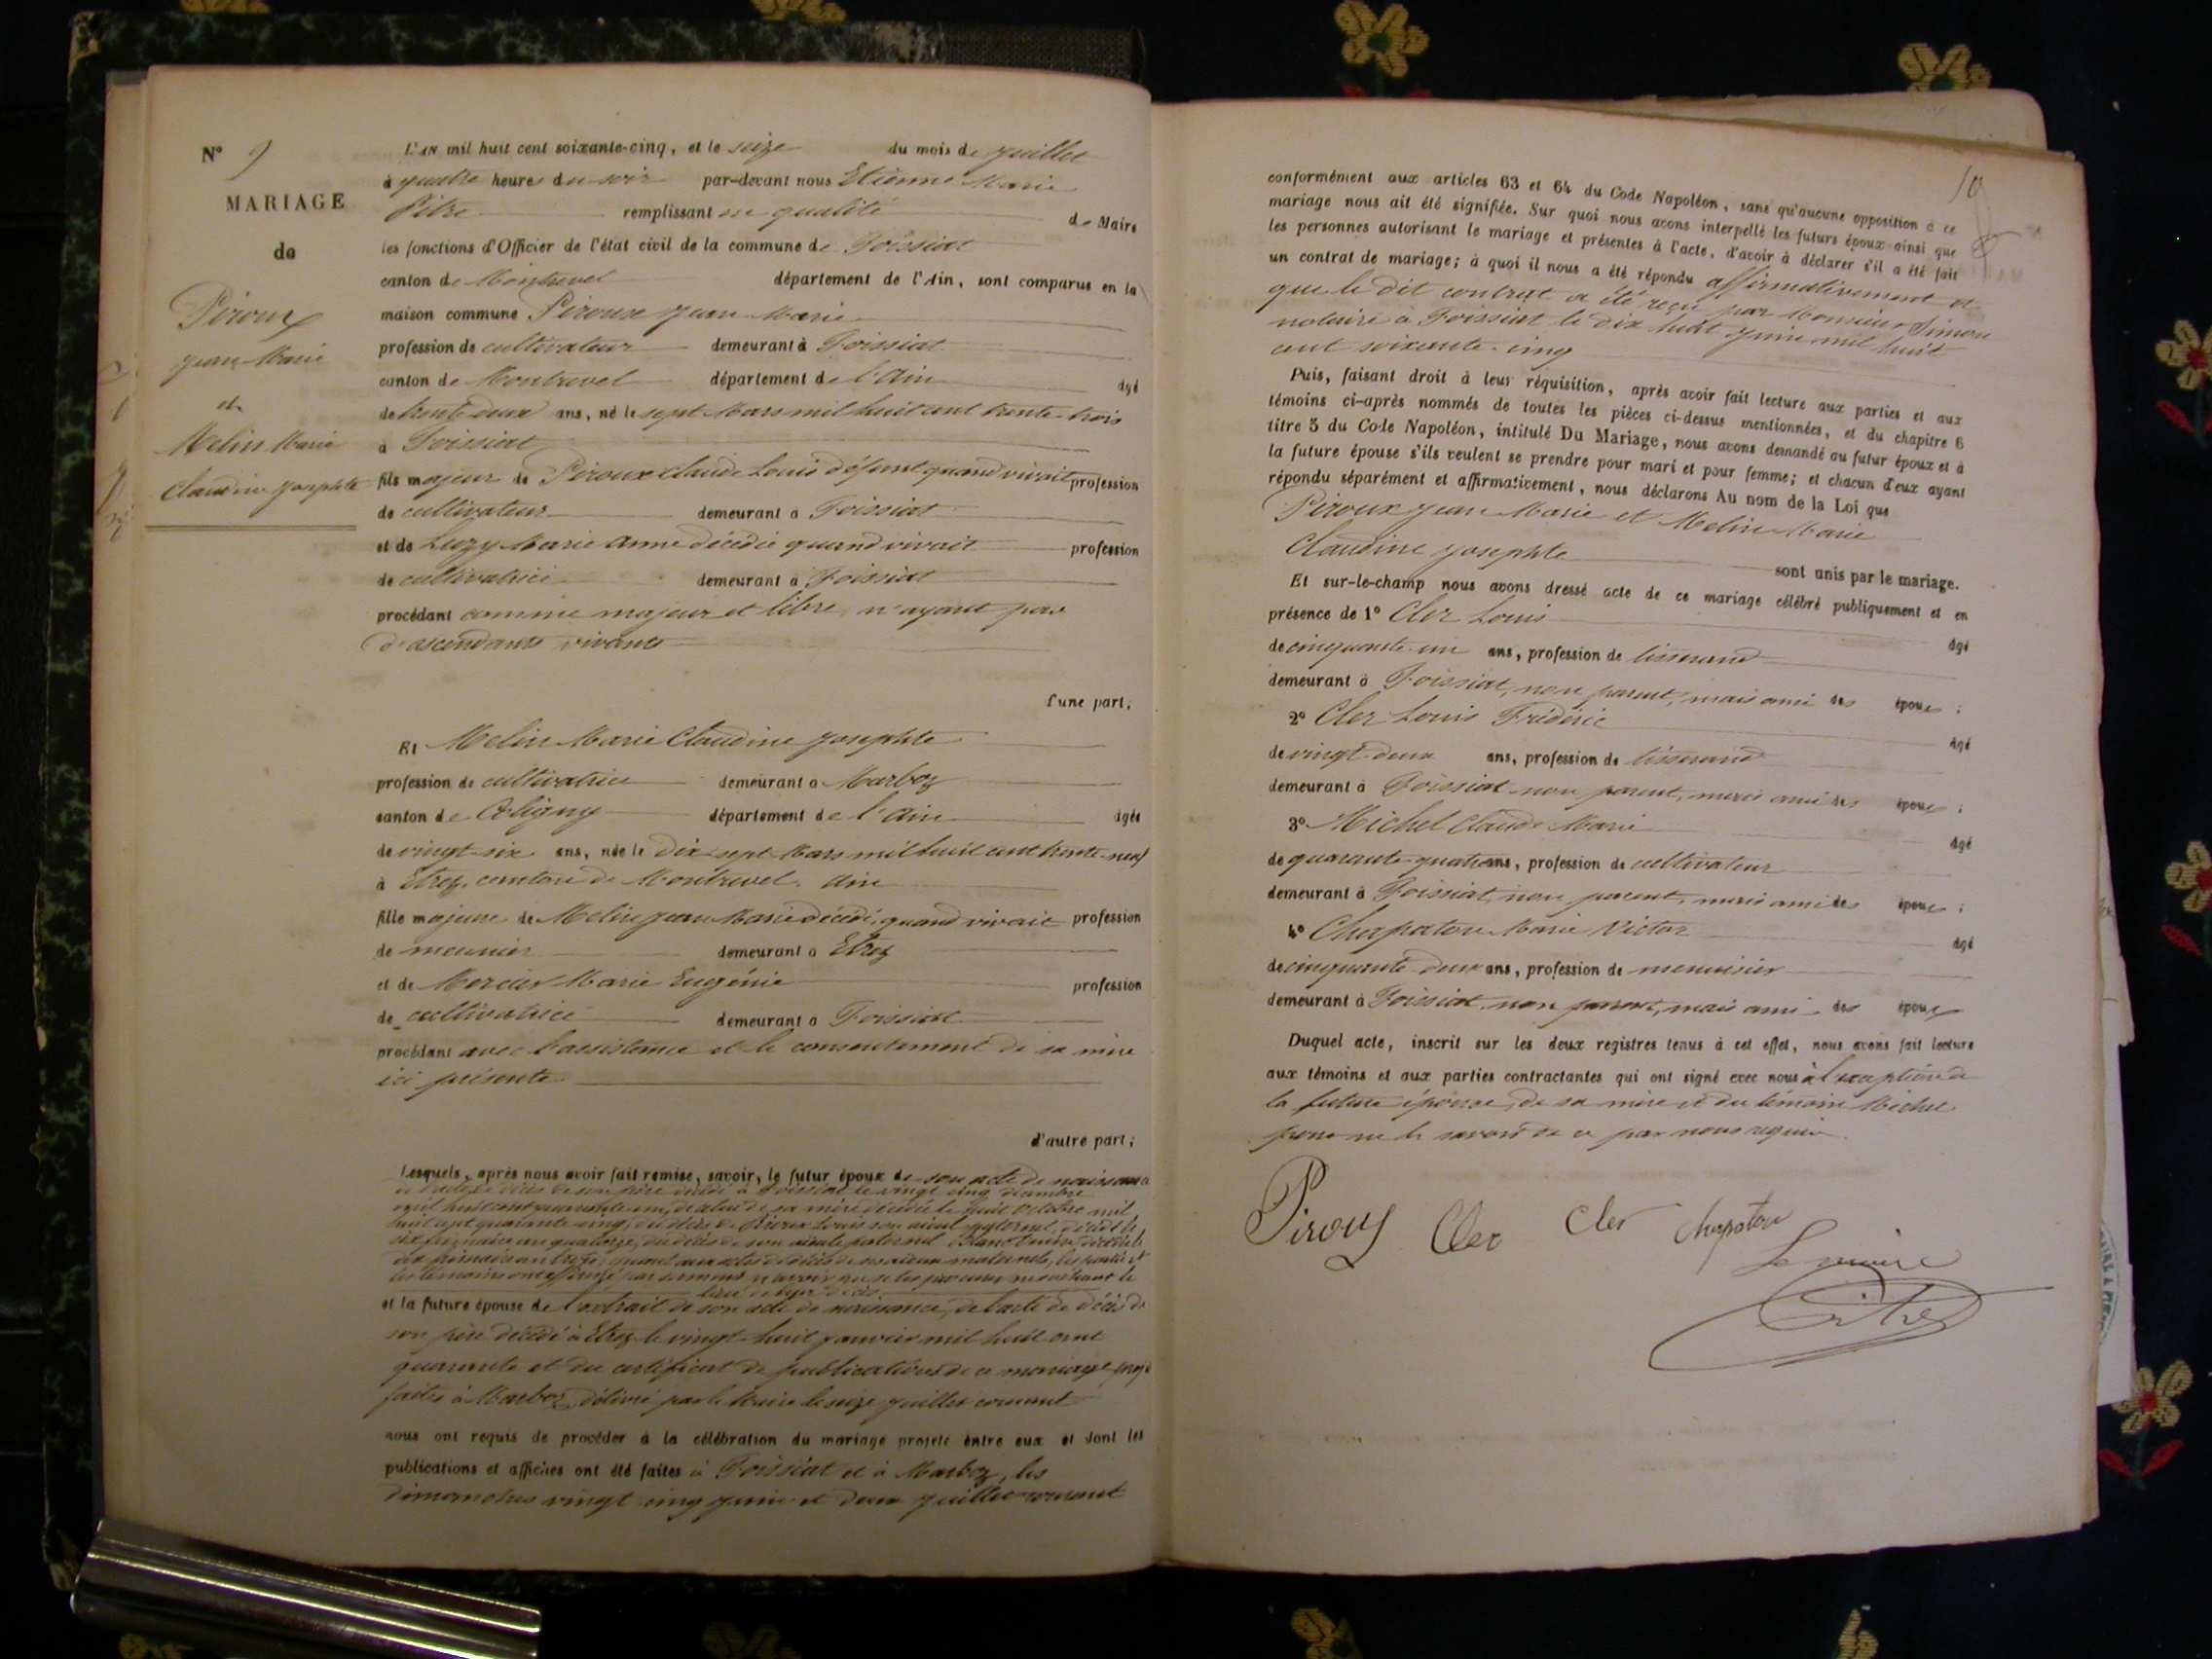 N° 9
MARIAGE
de
Piroux
Jean Marie
et
Melin Marie
Claudine Josephte
L'AN mil huit cent soixante-cinq, et le seize du mois de juillet
à quatre heures du soir par-devant nous Etienne Marie
Pitre remplissant en qualité de Maire
les fonctions d'Officier de l'état civil de la commune de Foissiat
canton de Montrevel département de l'Ain, sont comparus en la
maison commune Piroux Jean Marie
profession de cultivateur demeurant à Foissiat
canton de Montrevel département de l'Ain âgé
de trente deux ans, né le sept Mars mil huit cent trente-trois
à Foissiat
fils majeur de Piroux Claude Louis défunt quand vivait profession
de cultivateur demeurant à Foissiat
et de Luzy Marie Anne décédée quand vivait profession
de cultivatrice demeurant à Foissiat
procédant comme majeur et libre, n'ayant pas
d'ascendants vivants
d'une part,
Et Melin Marie Claudine Josephte
profession de cultivatrice demeurant à Marboz
canton de Coligny département de l'Ain âgée
de vingt-six ans, née le dix sept Mars mil huit cent trente-neuf
à Etrez, canton de Montrevel. Ain
fille majeure de Melin Jean Marie décédé, quand vivait profession
de meunier demeurant à Etrez
et de Mercier Marie Eugénie profession
de cultivatrice demeurant à Foissiat
procédant avec l'assistance et le consentement de sa mère
ici présente
d'autre part;
Lesquels, après nous avoir fait remise, savoir, le futur époux de son acte de naissance
de l'acte de décès de son père décédé à Foissiat le vingt cinq décembre
mil huit cent quarante-un, de celui de sa mère décédée le huit Octobre mil
huit cent quarante cinq, du décès de Piroux Louis son aïeul paternel, décédé le
six frimaire an quatorze, du décès de son aïeule paternel décédée le
dix frimaire an treize, quant aux actes de décès de ses aïeux maternels, les parties et
les témoins ont affirmé par serment n'avoir pu se les procurer ne sachant le
lieu de leur décès
et la future épouse de l'extrait de son acte de naissance, de l'acte de décès de
son père décédé à Etrez le vingt-huit janvier mil huit cent
quarante et du certificat de publications de ce mariage
faites à Marboz, délivré par le Maire le seize juillet courant
nous ont requis de procéder à la célébration du mariage projeté entre eux et dont les
publications et affiches ont été faites à Foissiat et à Marboz, les
dimanches vingt cinq juin et deux juillet courant
10
conformément aux articles 63 et 64 du Code Napoléon, sans qu'aucune opposition à ce
mariage nous ait été signifiée. Sur quoi nous avons interpellé les futurs époux ainsi que
les personnes autorisant le mariage et présentes à l'acte, d'avoir à déclarer s'il a été fait
un contrat de mariage; à quoi il nous a été répondu affirmativement et
que le dit contrat a été reçu par Monsieur Simon
notaire à Foissiat le dix huit juin mil huit
cent soixante-cinq
Puis, faisant droit à leur réquisition, après avoir fait lecture aux parties et aux
témoins ci-après nommés de toutes les pièces ci-dessus mentionnées, et du chapitre 6
titre 5 du Code Napoléon, intitulé Du Mariage, nous avons demandé au futur époux et à
la future épouse s'ils veulent se prendre pour mari et pour femme; et chacun d'eux ayant
répondu séparément et affirmativement, nous déclarons Au nom de la Loi que
Piroux Jean Marie et Melin Marie
Claudine Josephte sont unis par le mariage.
Et sur-le-champ nous avons dressé acte de ce mariage célébré publiquement et en
présence de 1° Cler Louis âgé
de cinquante-un ans, profession de tisserand
demeurant à Foissiat, non parent, mais ami des époux;
2° Cler Louis Frédéric âgé
de vingt-deux ans, profession de tisserand
demeurant à Foissiat non parent, mais ami des époux;
3° Michel Claude Marie âgé
de quarante-quatre ans, profession de cultivateur
demeurant à Foissiat, non parent, mais ami des époux;
4° Chapaton Marie Victor âgé
de cinquante-deux ans, profession de menuisier
demeurant à Foissiat non parent, mais ami des époux
Duquel acte, inscrit sur les deux registres tenus à cet effet, nous avons fait lecture
aux témoins et aux parties contractantes qui ont signé avec nous à l'exception de
la future épouse, de sa mère et du témoin Michel
pour ne le savoir de ce par nous requis.
Piroux Cler Cler Chapaton
Le maire
Pitre